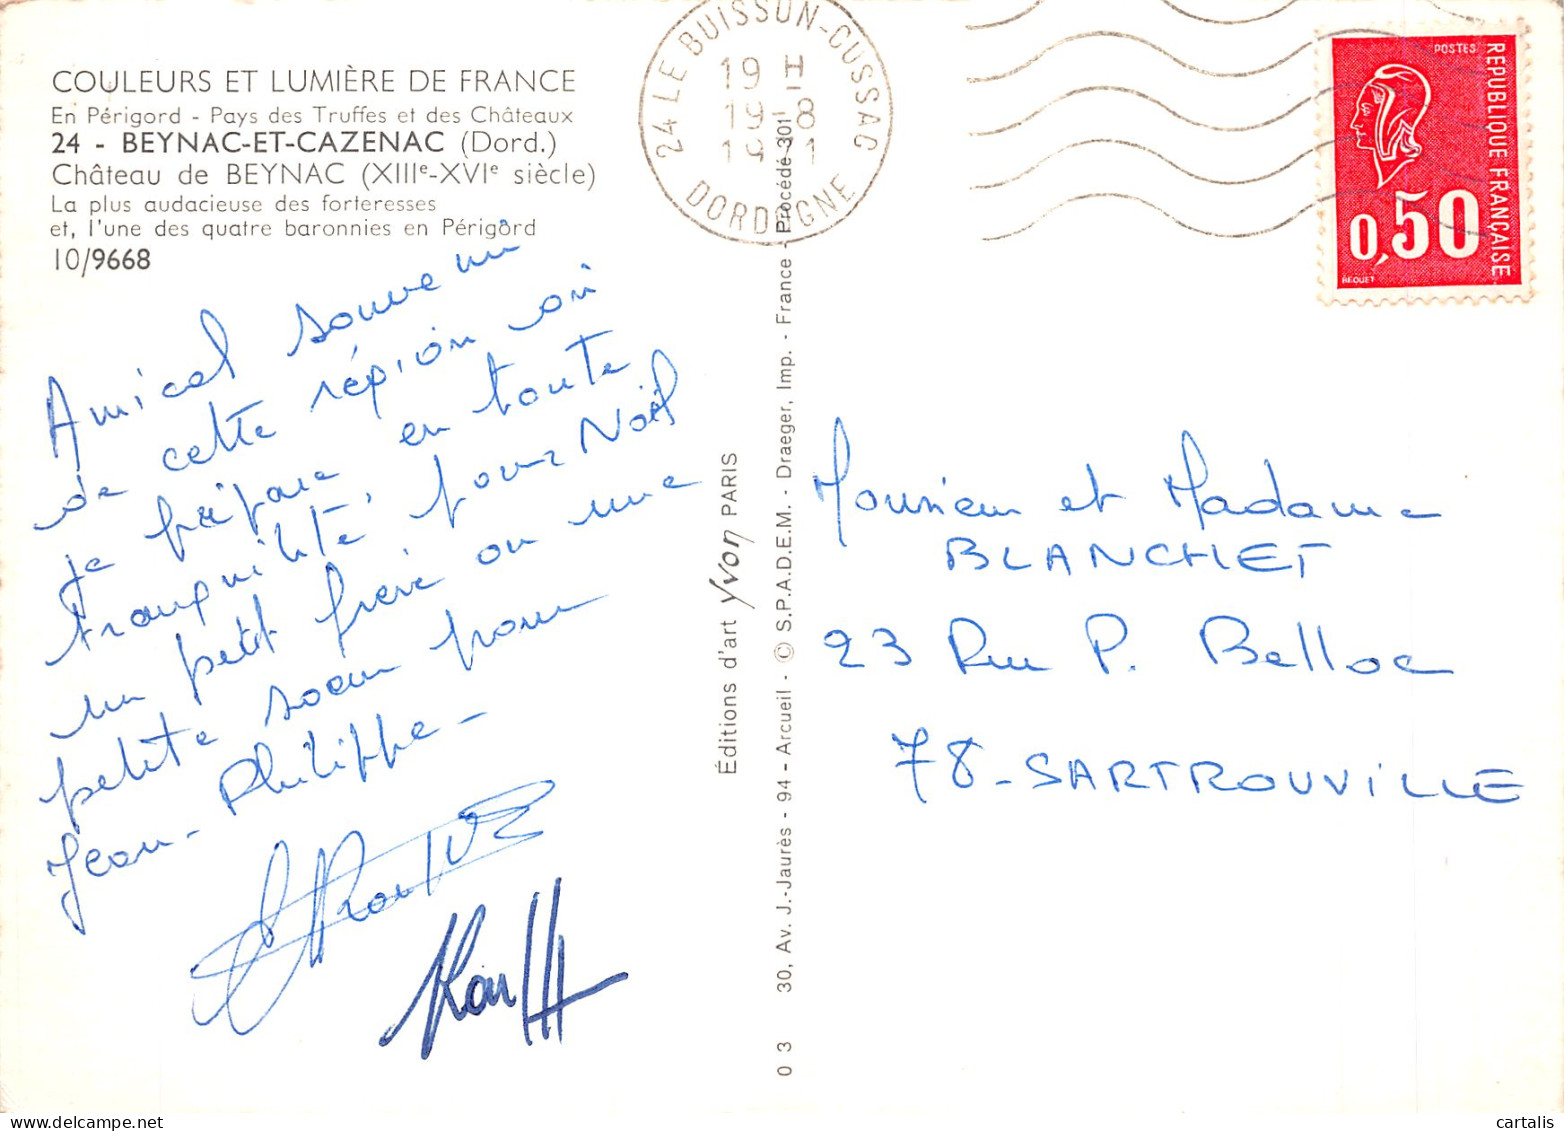 COULEURS ET LUMIÈRE DE FRANCE
En Périgord - Pays des Truffes et des Châteaux
24 - BEYNAC-ET-CAZENAC (Dord.)
Château de BEYNAC (XIIIe-XVIe siècle)
La plus audacieuse des forteresses
et, l'une des quatre baronnies en Périgord
10/9668
Amical souvenir
de cette région où
je prépare en toute
tranquilité, pour Noël
un petit frère ou une
petite soeur pour
Jean-Philippe -
24 LE BUISSON-CUSSAC
19 H
19-8
1971
DORDOGNE
POSTES
REPUBLIQUE FRANÇAISE
0,50
BEQUET
Éditions d'art Yvon PARIS
0 3 30, Av. J.-Jaurès - 94 - Arcueil - © S.P.A.D.E.M. - Draeger, Imp. - France - Procédé 301
Monsieur et Madame
BLANCHET
23 Rue P. Belloc
78 - SARTROUVILLE
cartalis